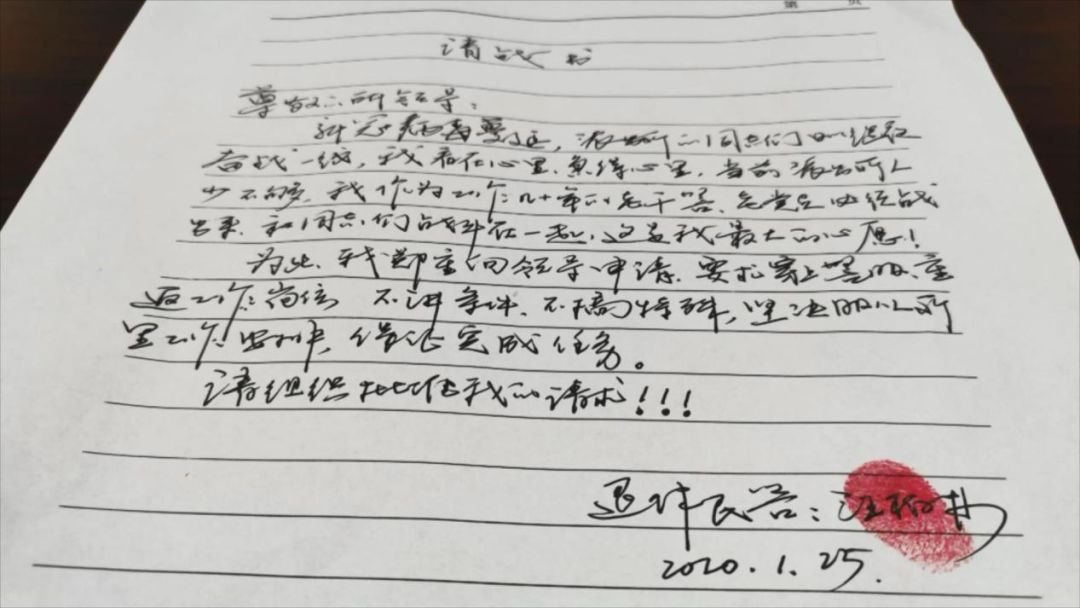 第 页
请战书
尊敬的所领导：
新冠病毒 ，派出所的同志们
奋战一线，我看在心里，急得心里，当前派出所人
少不够，我作为工作几十年的老干警，
，和同志们战斗在一起，这是我最大的心愿！
为此，我郑重向领导申请，要求穿上警服，重
返工作岗位，不讲条件，不搞特殊，坚决服从所
里工作安排，保证完成任务。
请组织批准我的请求！！！
退休民警：汪
2020.1.25.